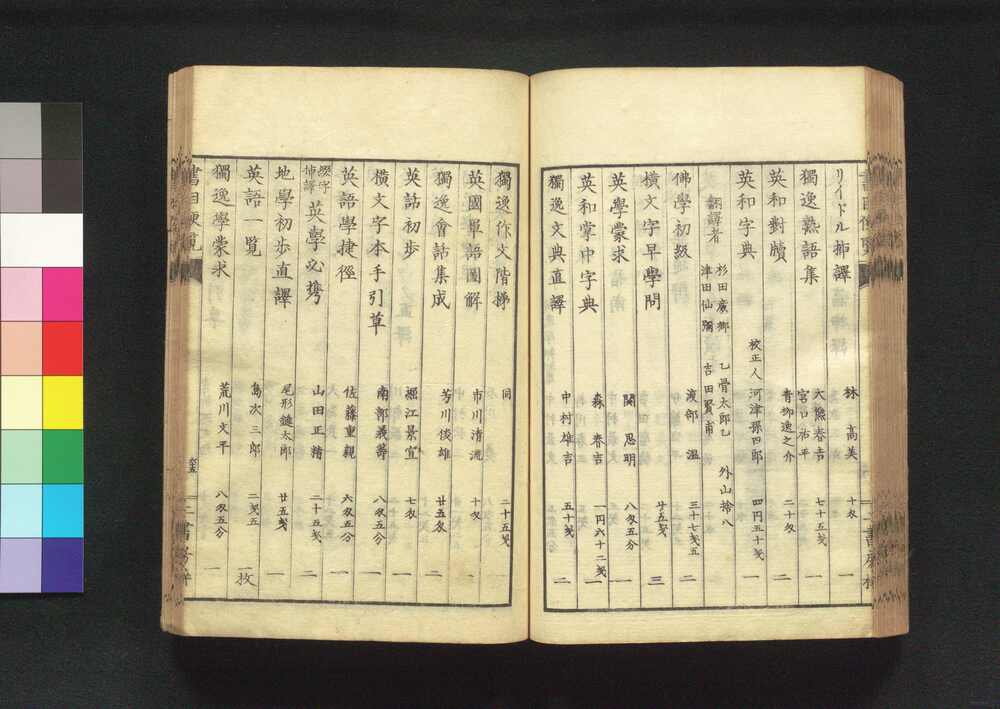 リイドル挿譯 林 高美 十匁 一
獨逸熟語集 大熊春吉 宮口祐平 七十五戔 一
英和對牘 青柳逸之介 二十匁 二
英和字典 校正人 河津孫四郎 四円五十戔 一
翻譯者 杉田廣郷 乙骨太郎乙 外山捨八
津田仙彌 吉田賢甫
佛學初級 渡部 温 三十七戔五 二
横文字早學問 廿五戔 三
英學蒙求 関 思明 八匁五分 一
英和掌中字典 森 春吉 一円六十二戔 一
獨逸文典直譯 中村雄吉 五十戔 二
獨逸作文階梯 同 二十五戔 一
英國單語圖解 市川清流 十匁 一
獨逸會話集成 芳川俊雄 廿五匁 二
英話初歩 堀江景宣 七匁 一
横文字本手引草 南部義籌 八匁五分 一
英語學捷徑 佐藤重親 六匁五分 一
綴字挿譯 英學必携 山田正精 二十五戔 二
地學初歩直譯 尾形鏈太郎 廿五戔 一
英語一覧 島次三郎 二戔五 一枚
獨逸學蒙求 荒川文平 八匁五分 一
書目便覧 六十五